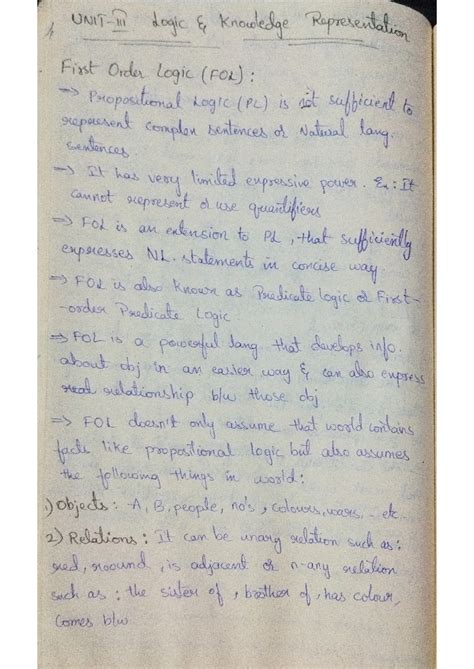 UNIT-III Logic & Knowledge Representation
First Order Logic (FOL) :
⇒ Propositional Logic (PL) is not sufficient to
represent complex sentences or Natural lang.
sentences
⇒ It has very limited expressive power. Ex: It
cannot represent or use quantifiers
⇒ FOL is an extension to PL, that sufficiently
expresses NL. statements in concise way
⇒ FOL is also known as Predicate logic or First-
-order Predicate Logic
⇒ FOL is a powerful lang that develops info.
about obj in an easier way & can also express
relationship b/w those obj
⇒ FOL doesn't only assume that world contains
facts like propositional logic but also assumes
the following things in world:
1) Objects : A, B, people, no's, colours, wars, .. etc
2) Relations : It can be unary relation such as:
red, round, is adjacent or n-any relation
such as : the sister of, brother of, has colour,
comes b/w